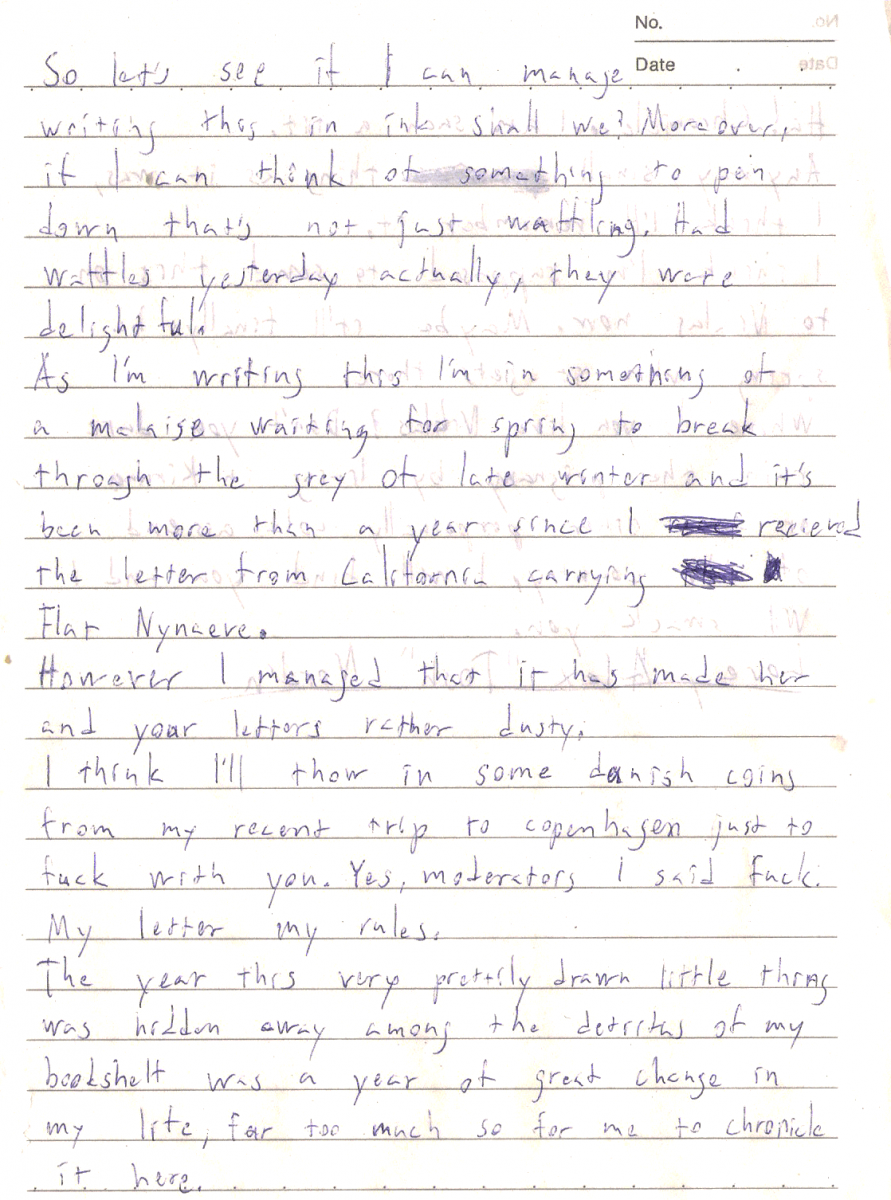 No.
Date
So let's see if I can manage
writing this in ink shall we? Moreover,
if I can think of something to pen
down that's not just waffling. Had
waffles yesterday actually, they were
delightful.
As I'm writing this I'm in something of
a malaise waiting for spring to break
through the grey of late winter and it's
been more than a year since I recieved
the letter from California carrying
Flat Nynaeve.
However I managed that it has made her
and your letters rather dusty.
I think I'll thow in some danish coins
from my recent trip to copenhagen just to
fuck with you. Yes, moderators I said fuck.
My letter my rules.
The year this very prettily drawn little thing
was hidden away among the detritus of my
bookshelf was a year of great change in
my life, far too much so for me to chronicle
it here.